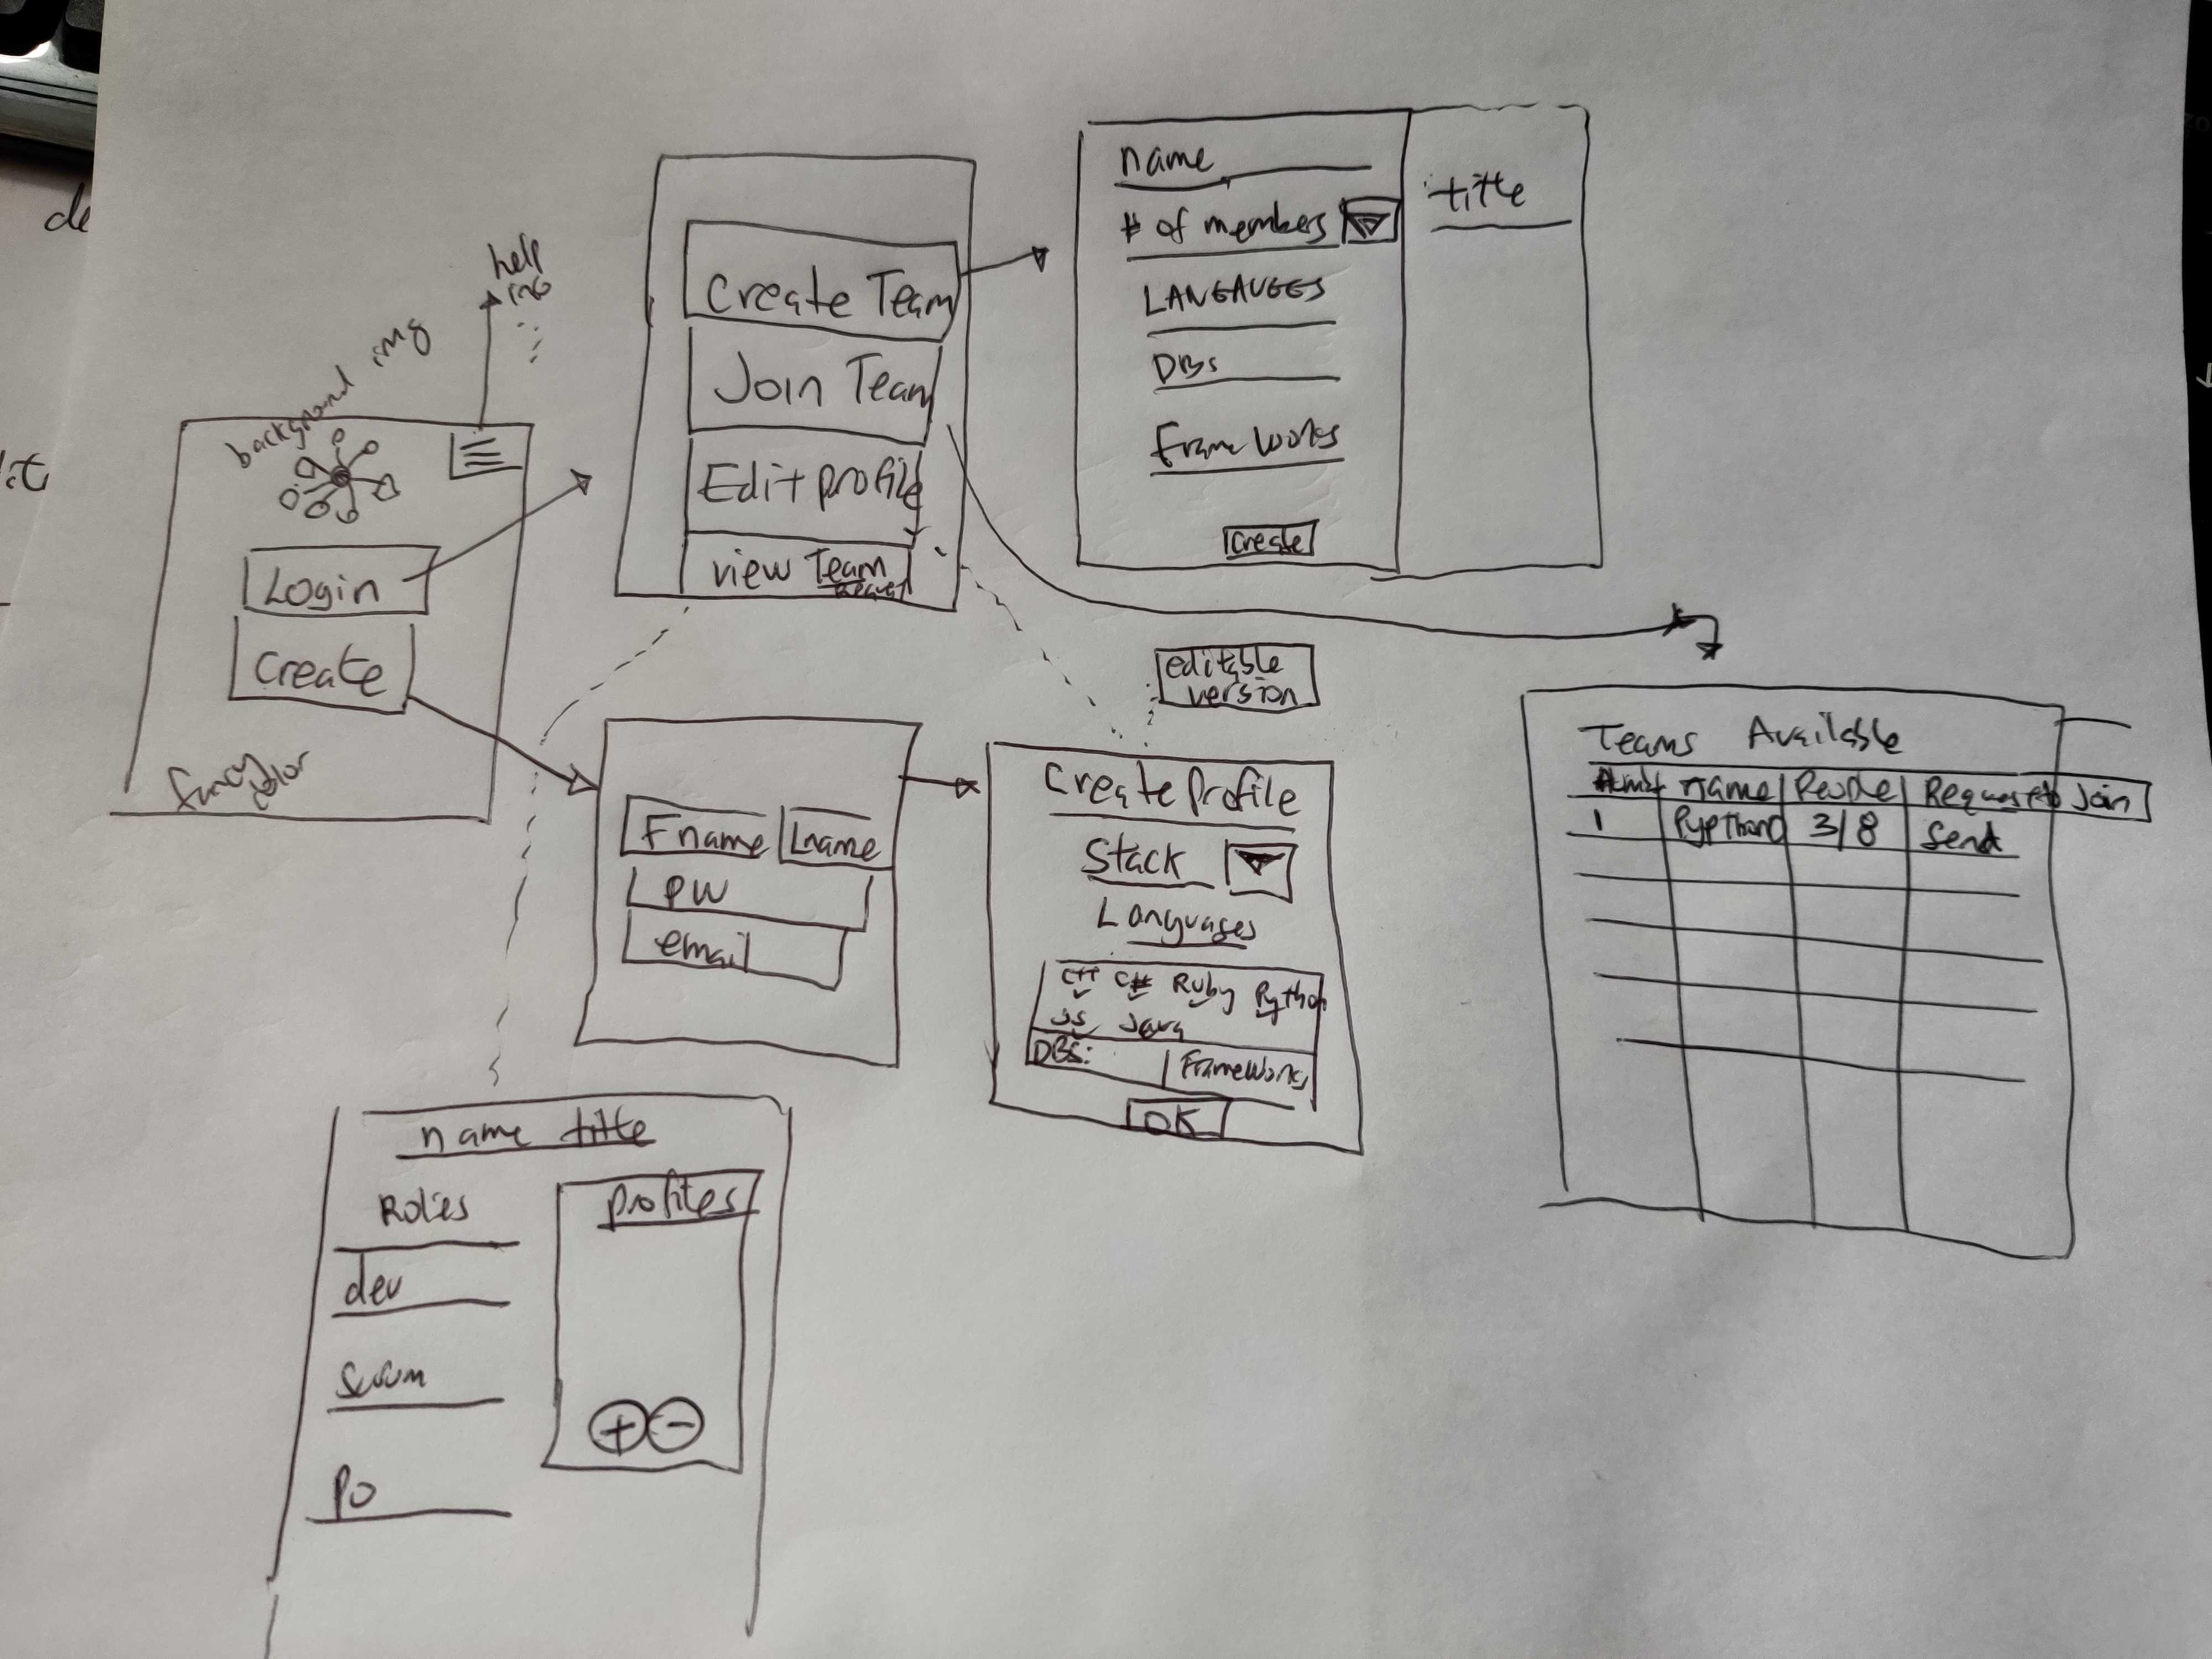 de
it
help
background img
Login
Create
fancy
color
Create Team
Join Team
Edit profile
view Team
name
# of members
LANGAUGES
DBs
Frame Works
Create
title
editable
version
Fname Lname
PW
email
Create Profile
Stack
Languages
C++ C# Ruby Python
JS Java
DBS: FrameWorks
OK
Teams Available
name People Request to Join
1 3/8 Send
name title
Roles
dev
scrum
PO
profiles
+ -